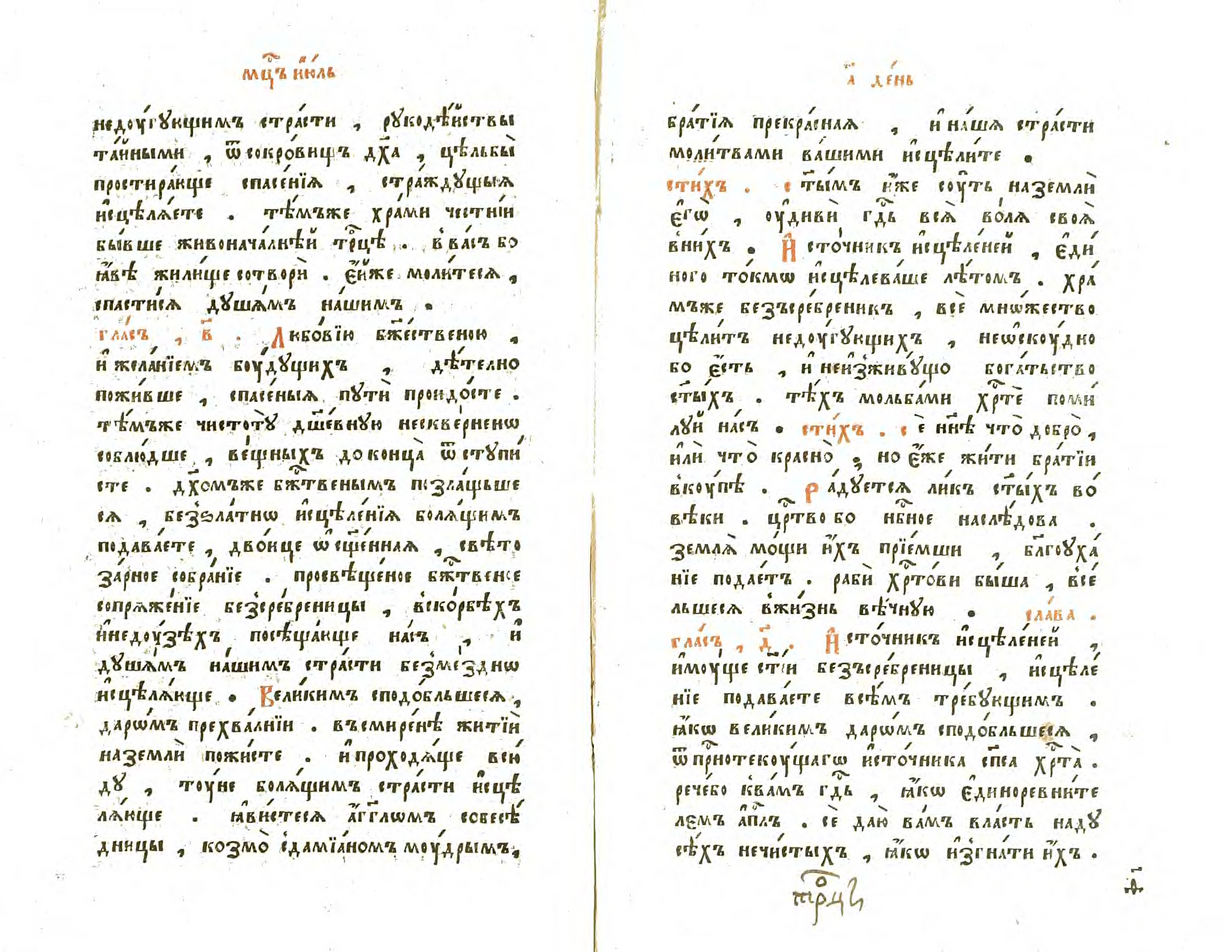 мц҃ъ і҆ю́ль
недоу́гꙋющимъ стра́сти , рꙋкодѣ́йствы
та́йными , ѿ сокро́вищъ дх҃а , цѣльбы̀
простира́юще спасе́нїѧ , стра́ждꙋщыѧ
и҆сцѣлѧ́ете . тѣ́мъже хра́ми честні́и
бы́вше живонача́лнѣй трⷪ҇цѣ . в̾ ва́съ бо
ꙗ҆́вѣ жили́ще сотворѝ . є҆́йже моли́тесѧ ,
спасти́сѧ дꙋша́мъ на́шимъ .
гла́съ , в҃ . Любо́вїю бж҃е́ственою ,
и҆ жела́нїемъ боу́дꙋщихъ , дѣ́телно
пожи́вше , спасе́ныѧ пꙋтѝ проидо́сте .
тѣ́мъже чистотꙋ̀ дш҃е́внꙋю нескве́рненѡ
соблю́дше , ве́щныхъ до конца̀ ѿстꙋпи́
сте . дх҃омъже бжⷭ҇твенымъ позлаще́ше
сѧ , без̾зла́тнѡ и҆сцѣле́нїѧ болѧ́щимъ
подава́ете , дво́ице ѡ҆сщ҃е́ннаѧ , свѣ́то
за́рное собра́нїе . просвѣще́ное бжⷭ҇твенѐе
сопрѧже́нїе безсре́бреницы , в̾ско́рбѣхъ
и҆ недоу́зѣхъ посѣща́юще на́съ , и҆
дꙋша́мъ на́шимъ стра́сти безме́зднѡ
и҆сцѣлѧ́юще . Вели́кимъ сподо́бльшесѧ ,
дарѡ́мъ прехва́лнїи . въ смире́нѣ житїѝ
на землѝ пожи́сте . и҆ проходѧ́ще всю́
дꙋ , тоу́не болѧ́щимъ стра́сти и҆сцѣ
лѧ́юще . ꙗ҆ви́стесѧ а҆́гг҃лѡмъ собесѣ́
дницы , козмо̀ с̾дамїа́номъ моу́дрымъ ,
а҃ де́нь
бра́тїѧ прекра́снаѧ , и҆ на́шѧ стра́сти
моли́твами ва́шими и҆сцѣли́те .
сти́хъ . ст҃ы́мъ и҆̀же соу́ть на землѝ
є҆гѡ̀ , оу҆дивѝ гдⷭ҇ь всѧ̀ во́лѧ своѧ̀
в̾ни́хъ . И҆сто́чникъ и҆сцѣле́ней , є҆ди́
ного то́кмѡ и҆сцѣлева́ше лѣ́томъ . хра́
мъже безъсре́бреникъ , всѐ мнѡ́жество
цѣли́тъ недоу́гꙋющихъ , неѡ҆скоу́дно
бо є҆́сть , и҆ неи҆зживꙋ́що бога́тьство
ст҃ы́хъ . тѣ́хъ мольба́ми хрⷭ҇тѐ поми́
лꙋй на́съ . сти́хъ . се̏ нн҃ѣ что̀ добро̀ ,
и҆лѝ что̀ красно̀ , но є҆́же жи́ти бра́тїи
вкоу́пѣ . Ра́дꙋетсѧ ли́къ ст҃ы́хъ во́
вѣки . црⷭ҇тво бо нбⷭ҇ное наслѣ́дова .
землѧ̀ мо́щи и҆́хъ прїе́мши , бл҃гоꙋха́
нїе подае́тъ . рабѝ хрⷭ҇то́ви бы́ша , все́
льшесѧ в̾жи́знь вѣ́чнꙋю . сла́ва .
гла́съ , д҃ . И҆сто́чникъ и҆сцѣле́ней ,
и҆моу́ще ст҃і́и безъсре́бреницы , и҆сцѣле́
нїе подава́ете всѣ́мъ тре́бꙋющимъ .
ꙗ҆́кѡ вели́кимъ дарѡ́мъ сподо́бльшесѧ ,
ѿ прⷭ҇нотекоу́щагѡ и҆сто́чника сп҃са хрⷭ҇та̀ .
рече́бо к̾ва́мъ гдⷭ҇ь , ꙗ҆́кѡ є҆диноре́вните
лемъ а҆пⷭ҇лъ . сѐ даю̀ ва́мъ вла́сть надꙋ́
сѣхъ нечи́стыхъ , ꙗ҆́кѡ и҆згна́ти и҆́хъ .